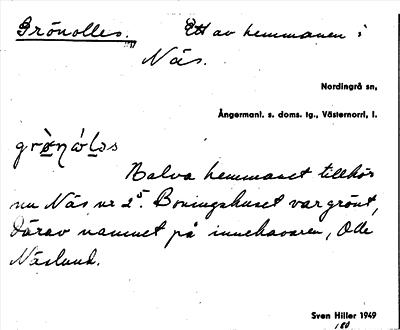 Grönolles. Ett av hemmanen i
Näs.
Nordingrå sn,
Ångermanl. s. doms. tg., Västernorrl. l.
Halva hemmanet tillhör
nu Näs nr 2⁵. Boningshuset var grönt,
därav namnet på innehavaren, Olle
Näslund.
Sven Hiller 1949
180